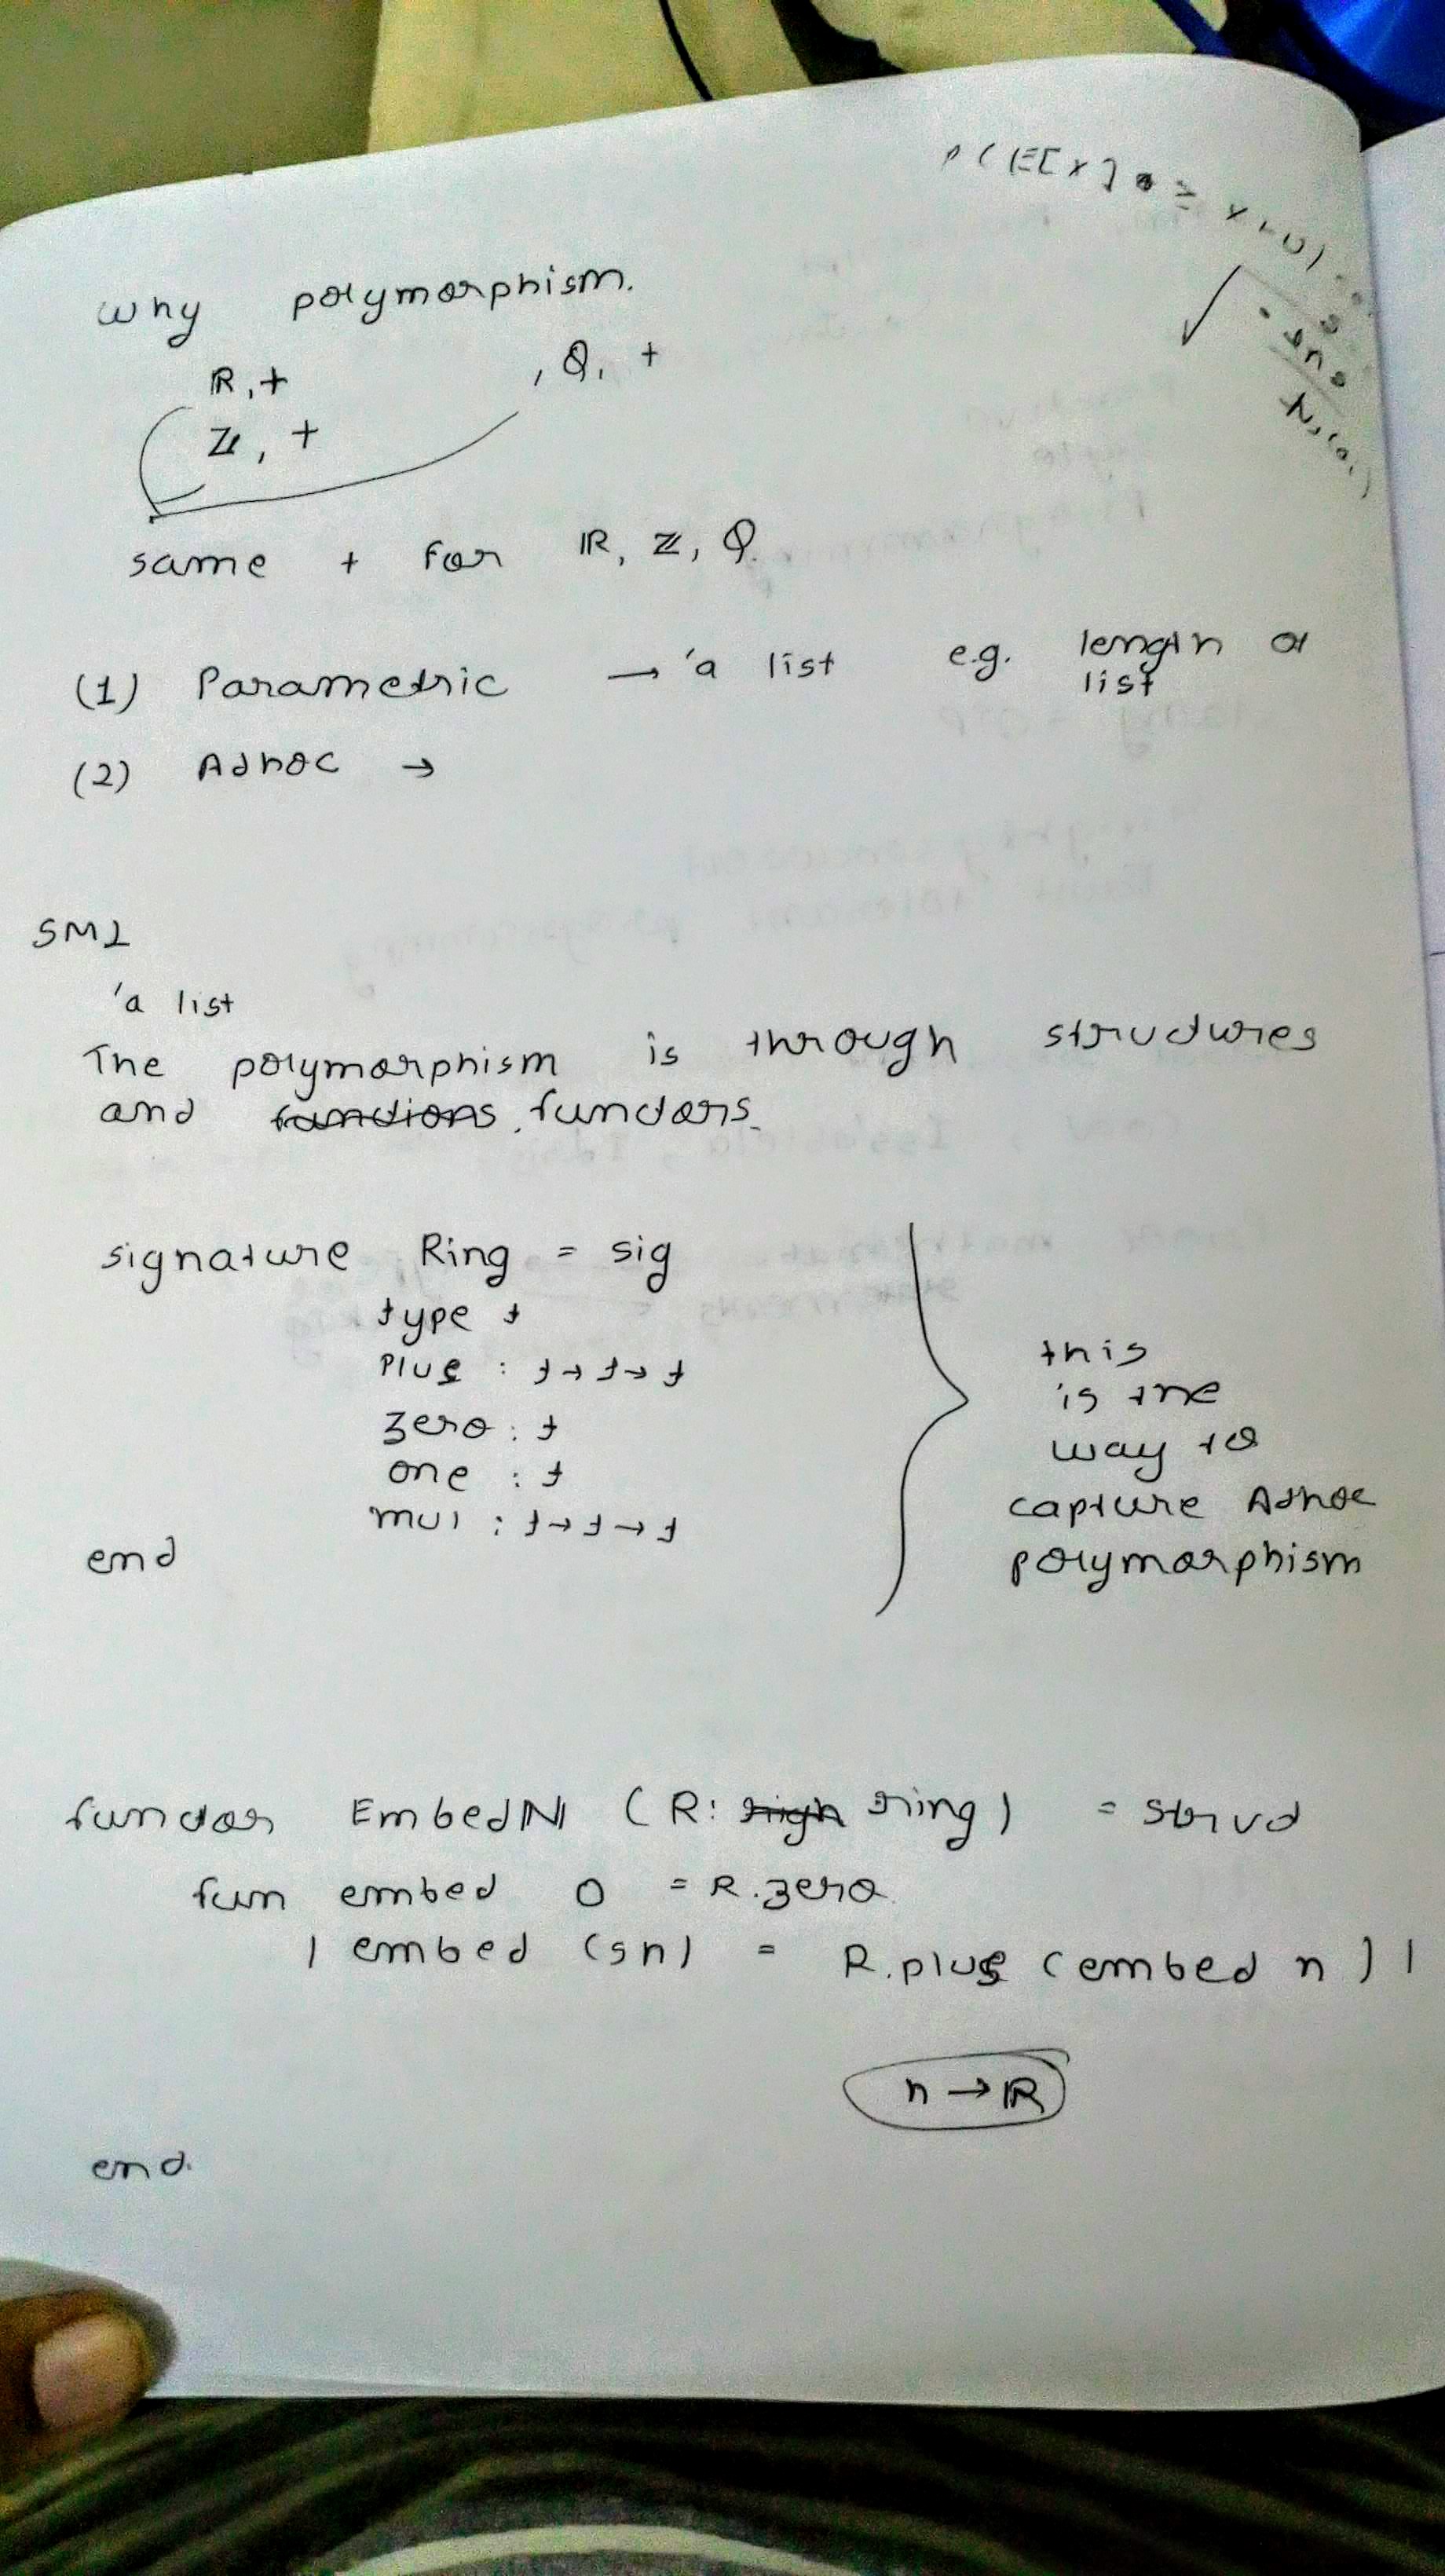 why polymorphism.
ℝ, + , ℚ, +
ℤ, +
same + for ℝ, ℤ, ℚ.
(1) Parametric → 'a list e.g. length of
list
(2) Adhoc →
SML
'a list
The polymorphism is through structures
and functions functors.
signature Ring = sig
type t
plus : t → t → t
zero : t
one : t
mul : t → t → t
end
this
is the
way to
capture Adhoc
polymorphism
functor EmbedN (R: sign ring) = struct
fun embed 0 = R.zero
| embed (sn) = R.plus (embed n) 1
n → ℝ
end.